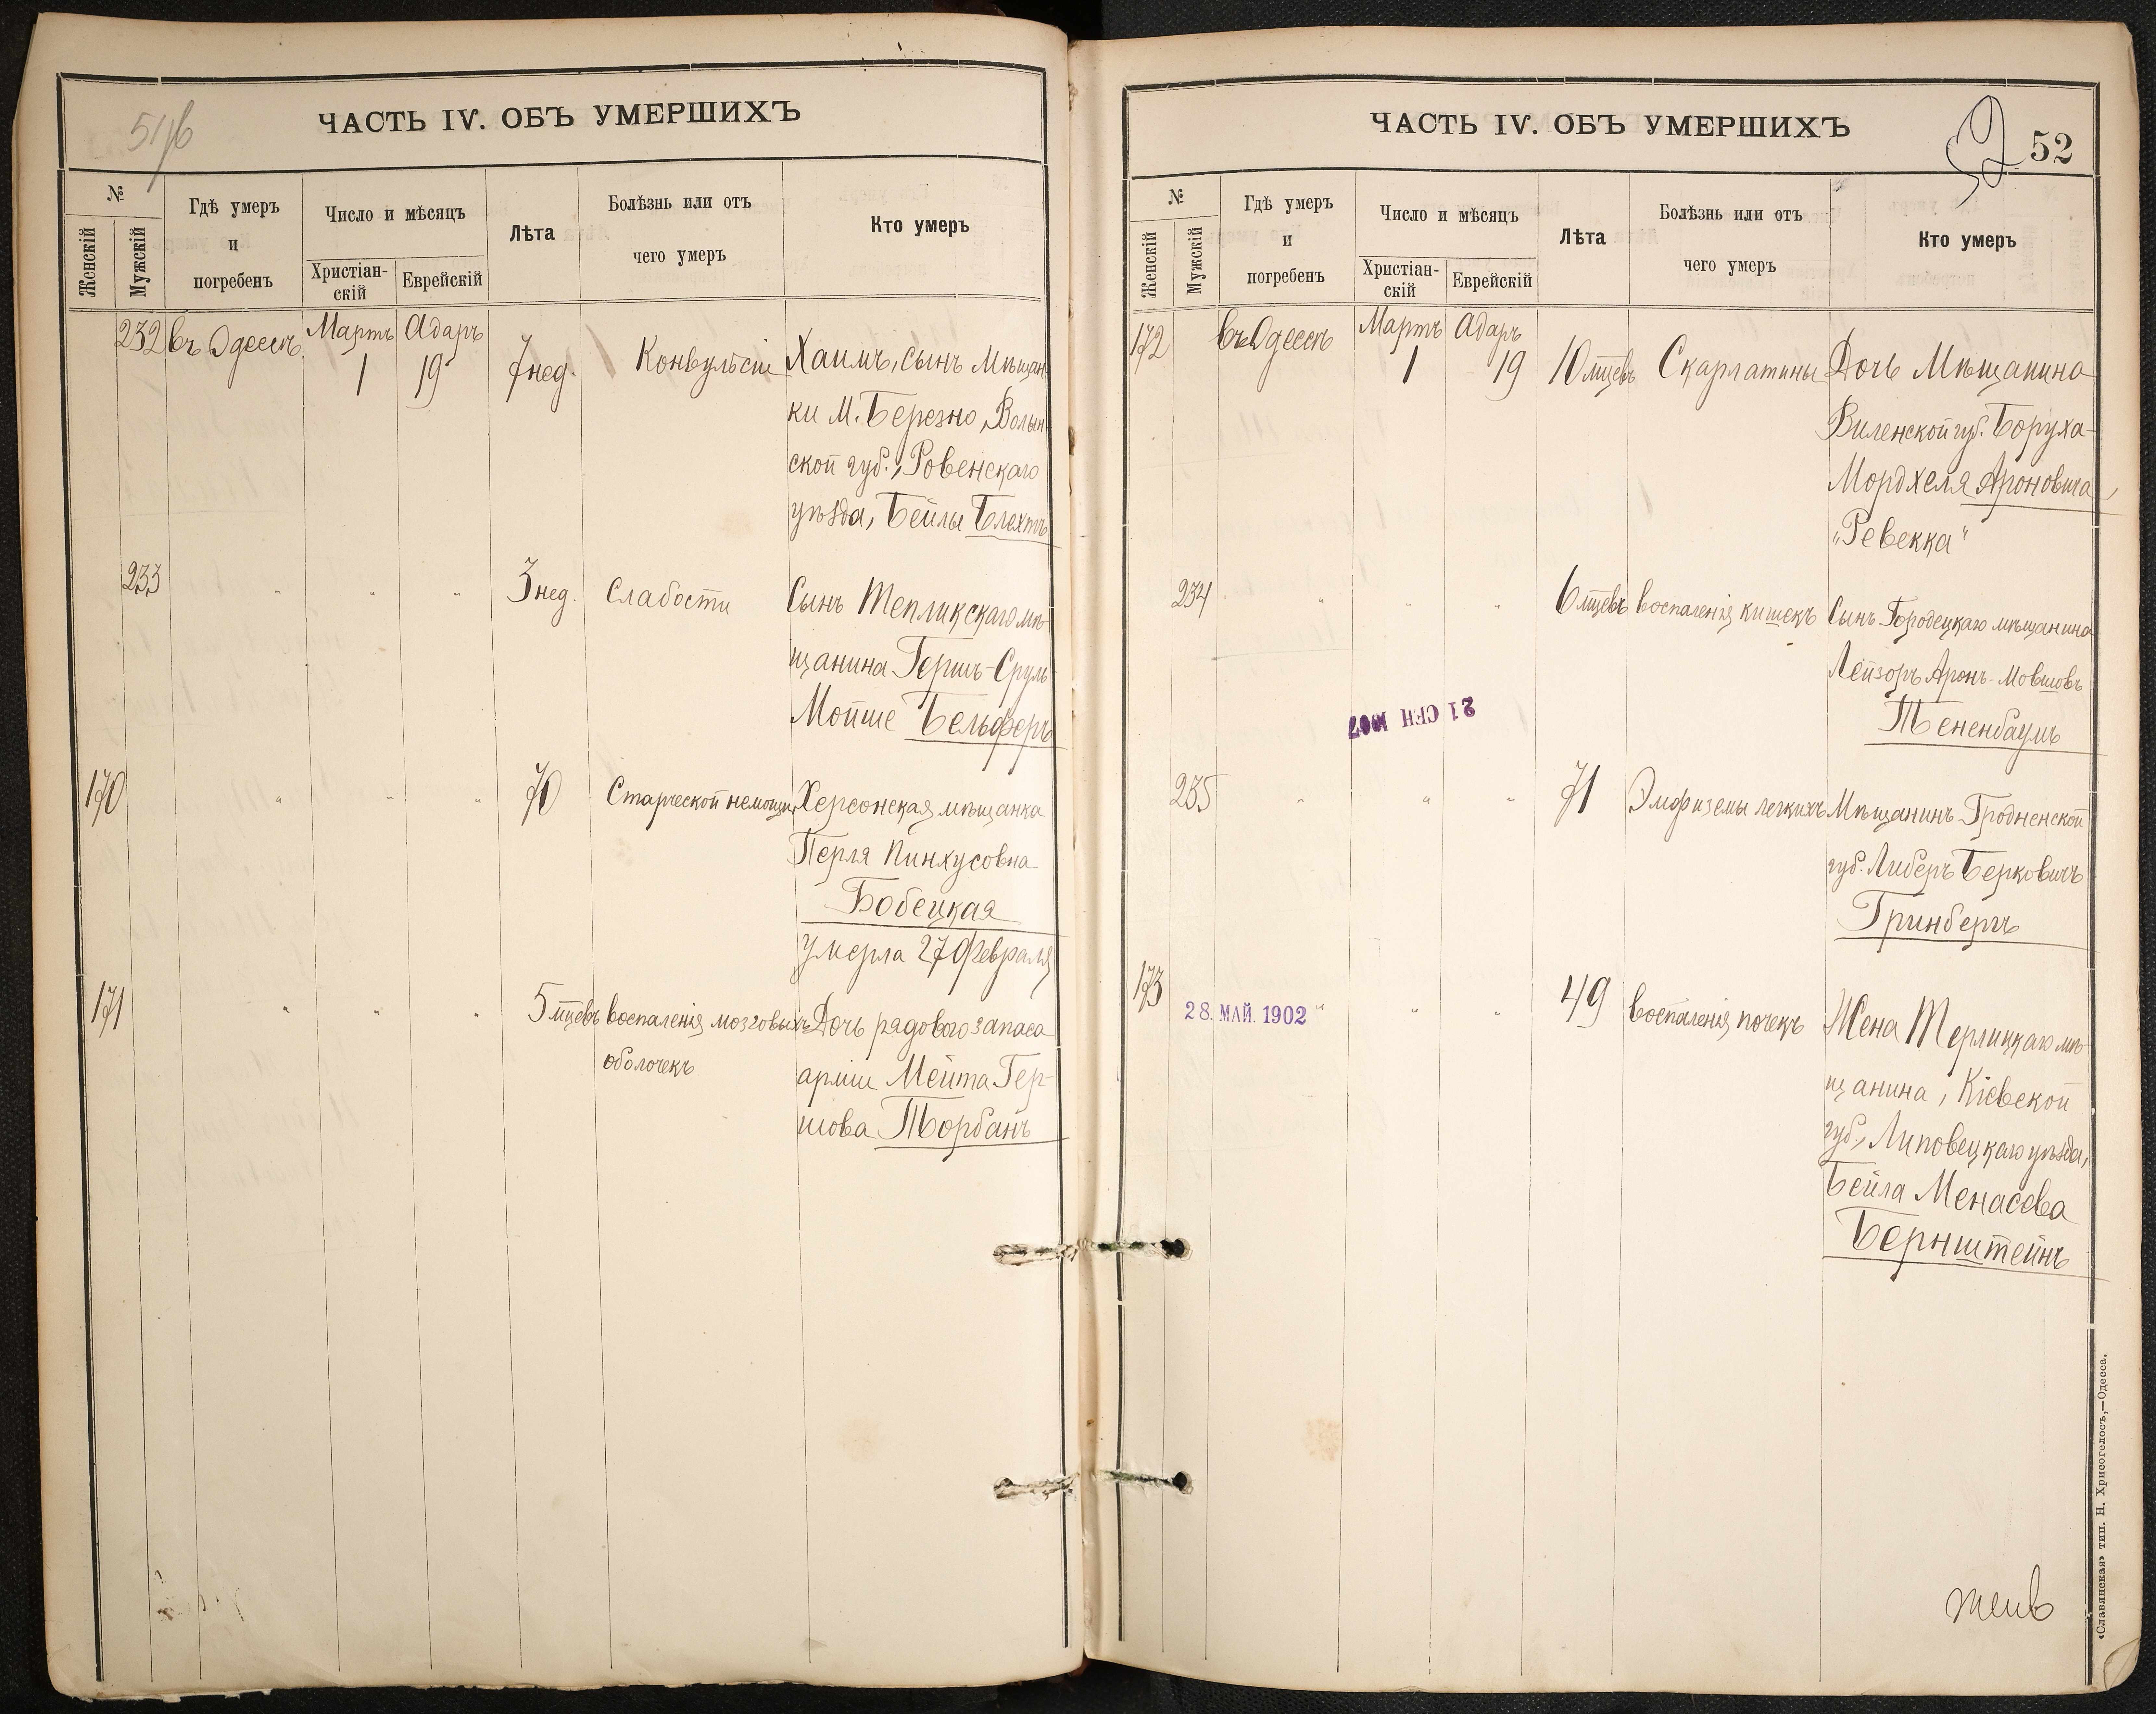 ЧАСТЬ IV. ОБЪ УМЕРШИХЪ
№
Женскій
Мужскій
Гдѣ умеръ
и
погребенъ
Число и мѣсяцъ
Христіан-
скій
Еврейскій
Лѣта
Болѣзнь или отъ
чего умеръ
Кто умеръ
232 въ Одессѣ Мартъ 1 Адаръ 19 7 нед. Конвульсіи Хаимъ, сынъ Мѣщан-
ки М. Березно, Волын-
ской губ., Ровенскаго
уѣзда, Бейлы Блехтъ
233 " " " 3 нед. Слабости Сынъ Тепликскаго мѣ-
щанина Гершъ-Сруль
Мойше Бельферъ
170 " " " 70 Старческой немощи Херсонская мѣщанка
Перля Пинхусовна
Бобецкая
умерла 27 Февраля
171 " " " 5 мцевъ воспаленія мозговыхъ Дочь рядового запаса
оболочекъ арміи Мейта Гер-
шова Торбанъ
ЧАСТЬ IV. ОБЪ УМЕРШИХЪ
52
52
№
Женскій
Мужскій
Гдѣ умеръ
и
погребенъ
Число и мѣсяцъ
Христіан-
скій
Еврейскій
Лѣта
Болѣзнь или отъ
чего умеръ
Кто умеръ
172 въ Одессѣ Мартъ 1 Адаръ 19 10 мцевъ Скарлатины Дочь Мѣщанина
Виленской губ. Боруха-
Мордхеля Ароновича,
"Ревекка"
234 " " " 6 мцевъ воспаленія кишекъ Сынъ Городецкаго мѣщанина
Лейзоръ Аронъ-Мовшовъ
Тененбаумъ
21 СЕН 1907
235 " " " 71 Эмфиземы легкихъ Мѣщанинъ Гродненской
губ. Либеръ Берковичъ
Гринбергъ
173 28. МАЙ. 1902 " " " 49 воспаленія почекъ Жена Терлицкаго мѣ-
щанина, Кіевской
губ., Липовецкаго уѣзда,
Бейла Менасева
Бернштейнъ
«Славянская» тип. Н. Хрисогелосъ,—Одесса.